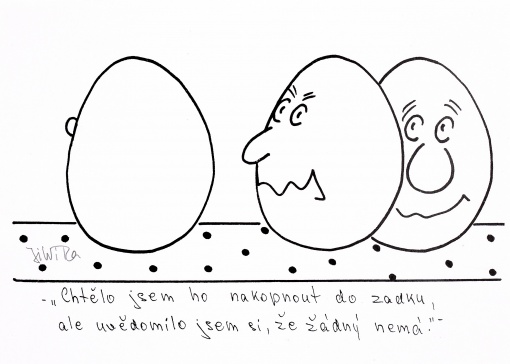 JiWiRa
-„Chtělo jsem ho nakopnout do zadku,
ale uvědomilo jsem si, že žádný nemá!"-